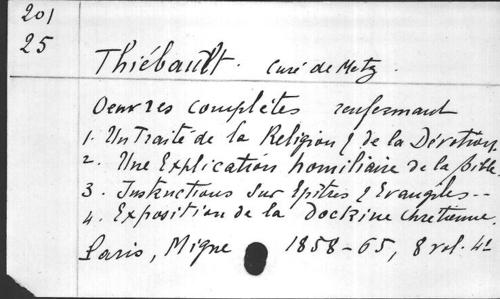 201
25
Thiébault. Curé de Metz.
Oeuvres complètes renfermant
1. Un Traité de la Religion & de la Dévotion
2. Une Explication homiliaire de la Bible.
3. Instructions sur Epitres & Evangiles--
4. Exposition de la Doctrine chretienne.
Paris, Migne 1858-65, 8 vol. 4°